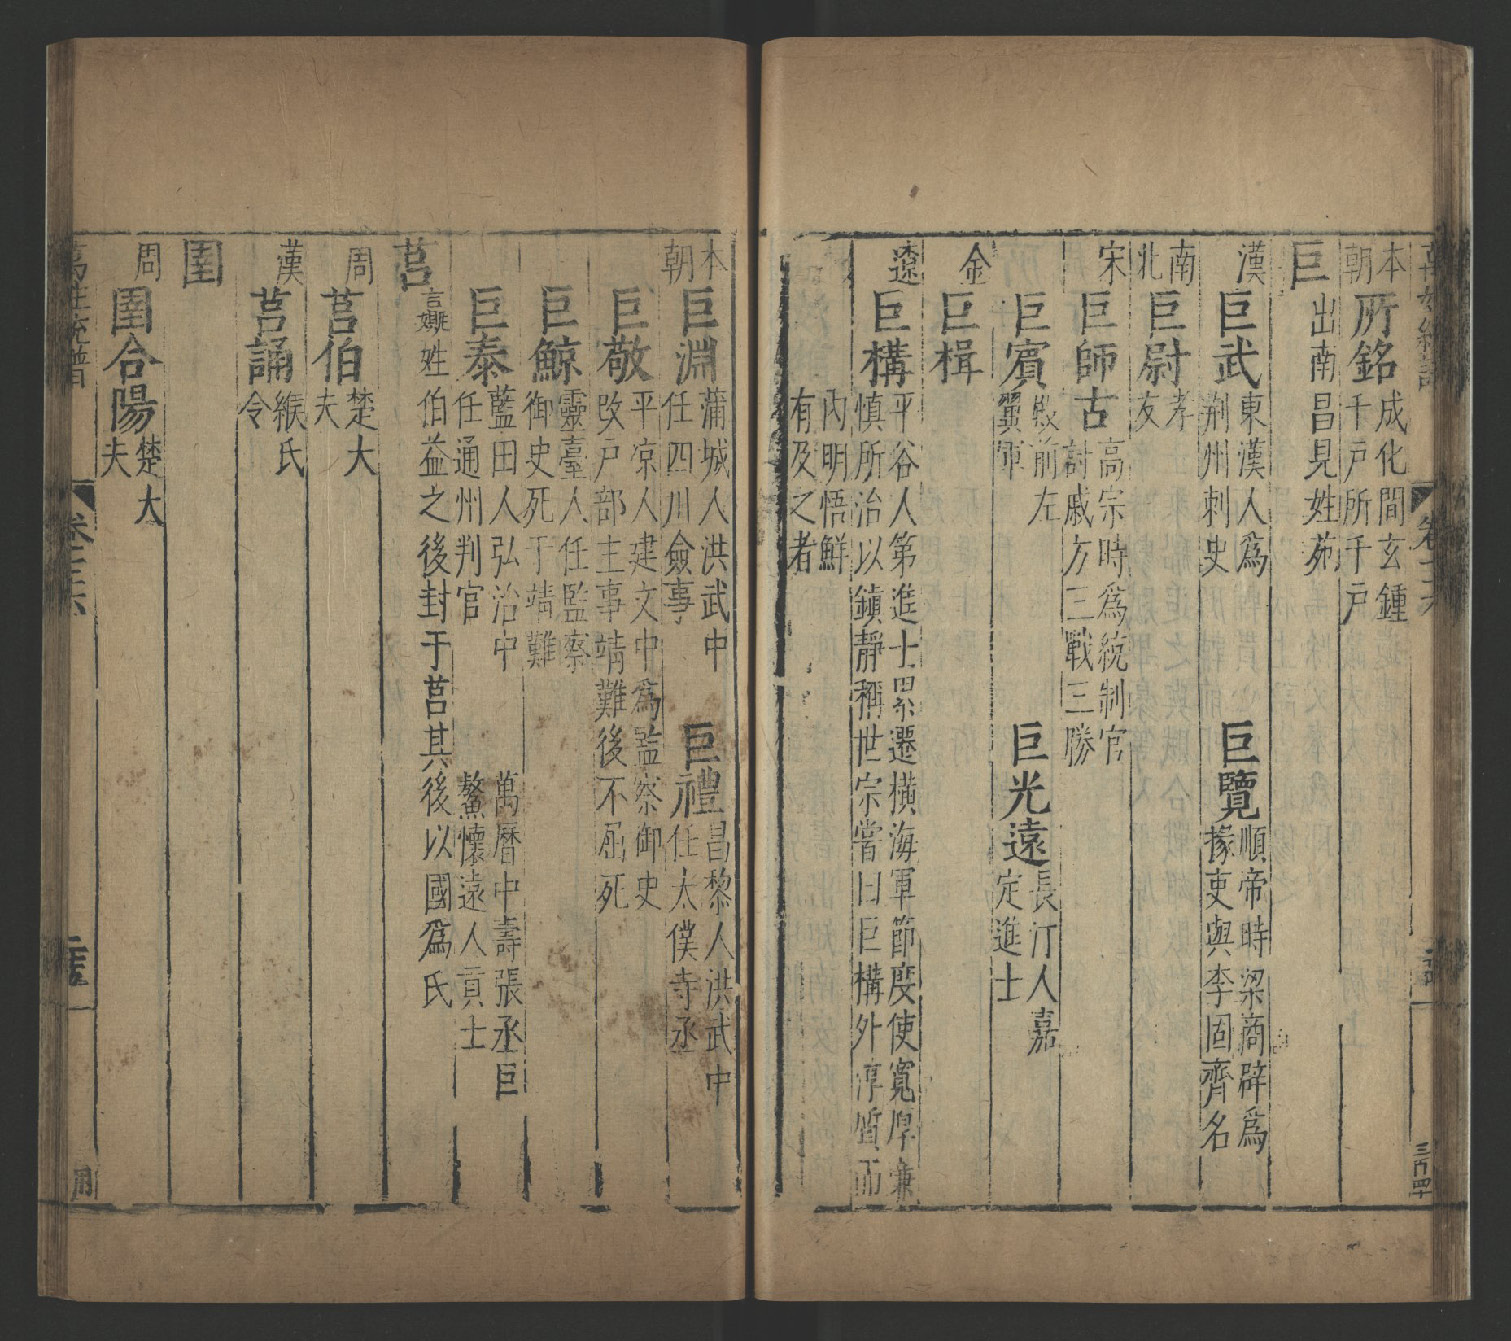 本朝
所銘 成化間玄鍾
千戶所千戶
巨 出南昌見姓苑
漢
巨武 東漢人爲
荆州刺史
巨覽 順帝時梁商辟爲
掾吏與李固齊名
南北
巨尉 孝
友
宋
巨師古 高宗時爲統制官
討戚方三戰三勝
巨濱 殿前左
翼軍
巨光遠 長汀人嘉
定進士
金
巨楫
遼
巨構 平谷人第進士累遷橫海軍節度使寬厚兼
慎所治以鎮靜稱世宗嘗曰巨構外淳質而
內明悟鮮
有及之者
本朝
巨淵 蒲城人洪武中
任四川僉事
巨禮 昌黎人洪武中
任太僕寺丞
巨敬 平凉人建文中爲監察御史
改戶部主事靖難後不屈死
巨鯨 靈臺人任監察
御史死于靖難
巨泰 藍田人弘治中
任通州判官
萬曆中壽張丞巨
鰲懷遠人貢士
莒 姓伯益之後封于莒其後以國爲氏
周
莒伯 楚大
夫
漢
莒誦 緱氏
令
圉
周
圉合陽 楚大
夫
萬姓統譜
卷七十六